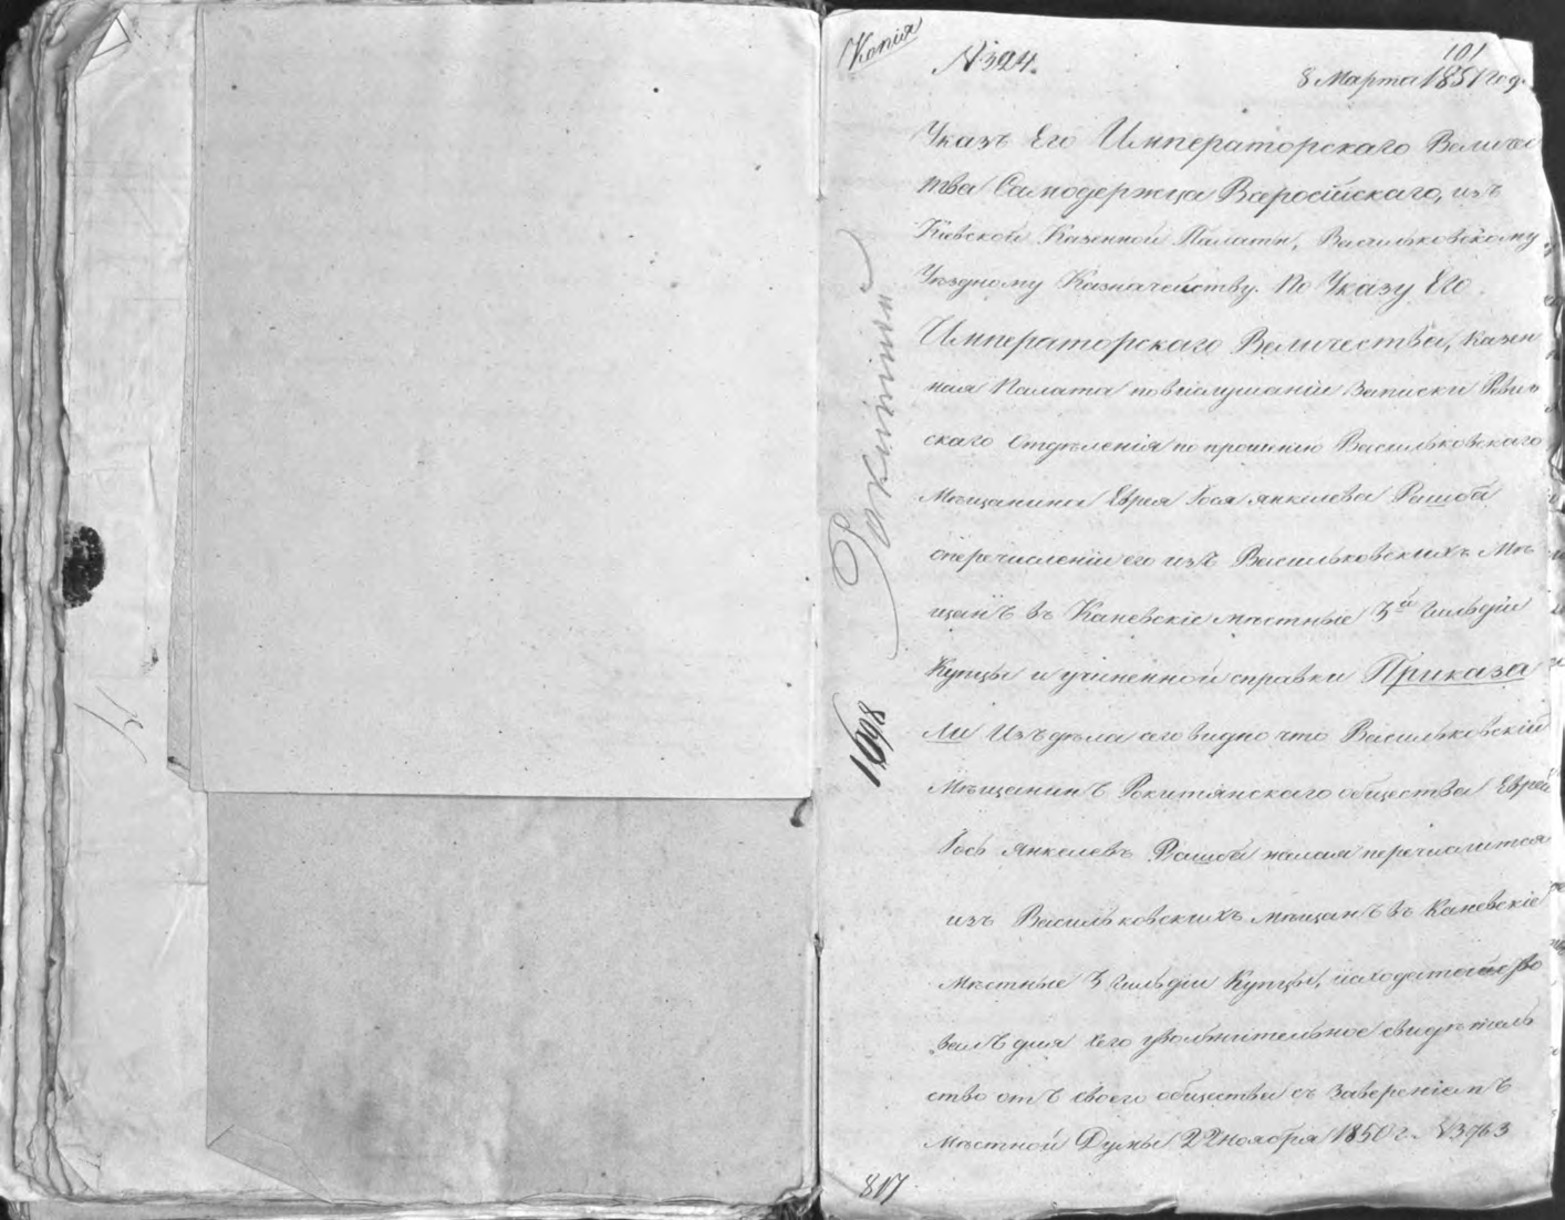 Копія
№ 324.
101
8 Марта 1851 год.
Указъ Его Императорскаго Величес
тва Самодержца Всеросійскаго, изъ
Кіевской Казенной Палаты, Васильковскому
Уѣздному Казначейству. По Указу Его
Императорскаго Величества, Казен
ная Палата по выслушаніи Записки Ревиз
скаго Отдѣленія по прошенію Васильковскаго
Мѣщанина Еврея Іося Янкелева Рашба
о перечисленіи его изъ Васильковскихъ Мѣ
щанъ въ Каневскіе мѣстные 3й Гильдіи
Купцы и учиненной справки Приказа
ли Изъ дѣла сего видно что Васильковскій
Мѣщанинъ Рокитянскаго общества Еврей
Іось Янкелевъ Рашба желая перечислится
изъ Васильковскихъ мѣщанъ въ Каневскіе
Мѣстные 3 Гильдіи Купцы,
для сего увольнительное свидѣтель
ство отъ своего общества съ Завереніемъ
Мѣстной Думы 22 Ноября 1850 г. № 3763
1698
817